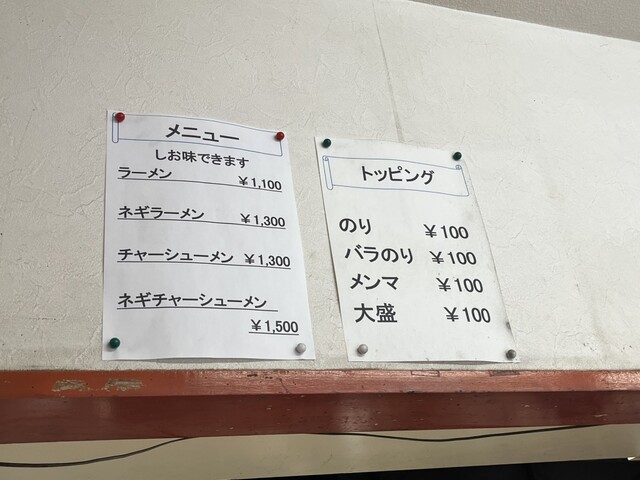 メニュー
しお味できます
ラーメン ￥1,100
ネギラーメン ￥1,300
チャーシューメン ￥1,300
ネギチャーシューメン
￥1,500
トッピング
のり ￥100
バラのり ￥100
メンマ ￥100
大盛 ￥100